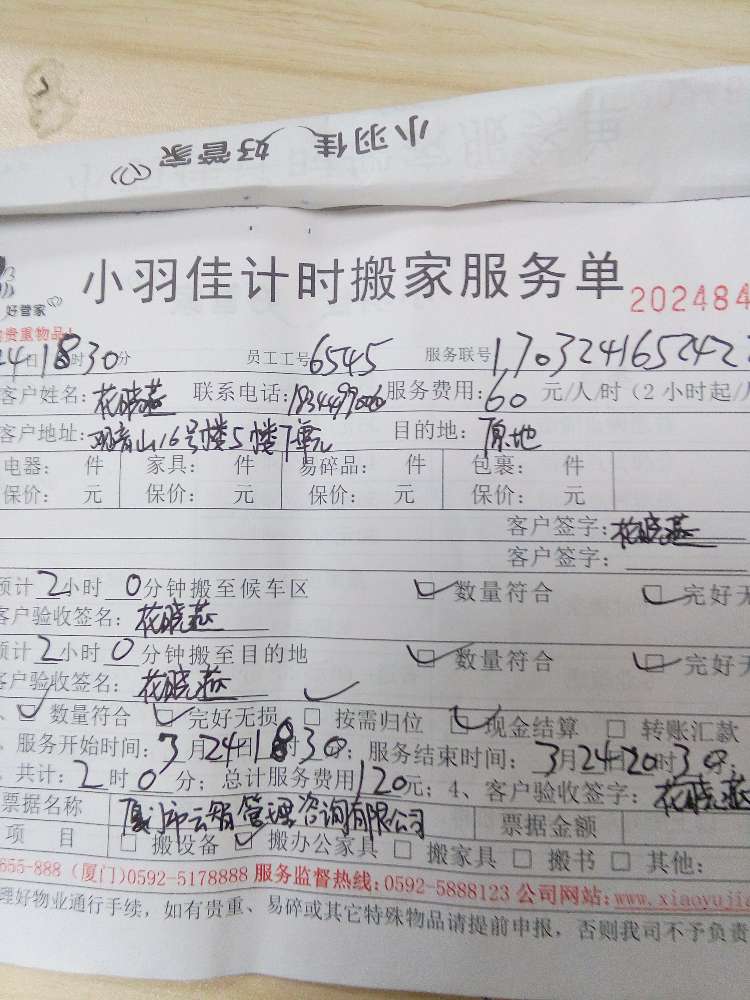 小羽佳 好管家
小羽佳计时搬家服务单
好管家
202484
贵重物品
24日18时30分 员工工号6545 服务联号
客户姓名:花晓燕 联系电话: 服务费用:60元/人/时(2小时起/
客户地址: 山16号楼5楼 单元 目的地:原地
电器: 件 家具: 件 易碎品: 件 包裹: 件
保价: 元 保价: 元 保价: 元 保价: 元
客户签字:花晓燕
客户签字:
预计2小时0分钟搬至候车区 数量符合 完好无
客户验收签名:花晓燕
预计2小时0分钟搬至目的地 数量符合 完好无
客户验收签名:花晓燕
、数量符合 完好无损 按需归位 现金结算 转账汇款
、服务开始时间:3月24日18时30分;服务结束时间:3月24日20时30分;
、共计:2时0分;总计服务费用120元;4、客户验收签字:花晓燕
票据名称 厦门市云智管理咨询有限公司 票据金额
项目 搬设备 搬办公家具 搬家具 搬书 其他:
655-888(厦门)0592-5178888 服务监督热线:0592-5888123 公司网站:www.xiaoyujia
理好物业通行手续,如有贵重、易碎或其它特殊物品请提前申报,否则我司不予负责